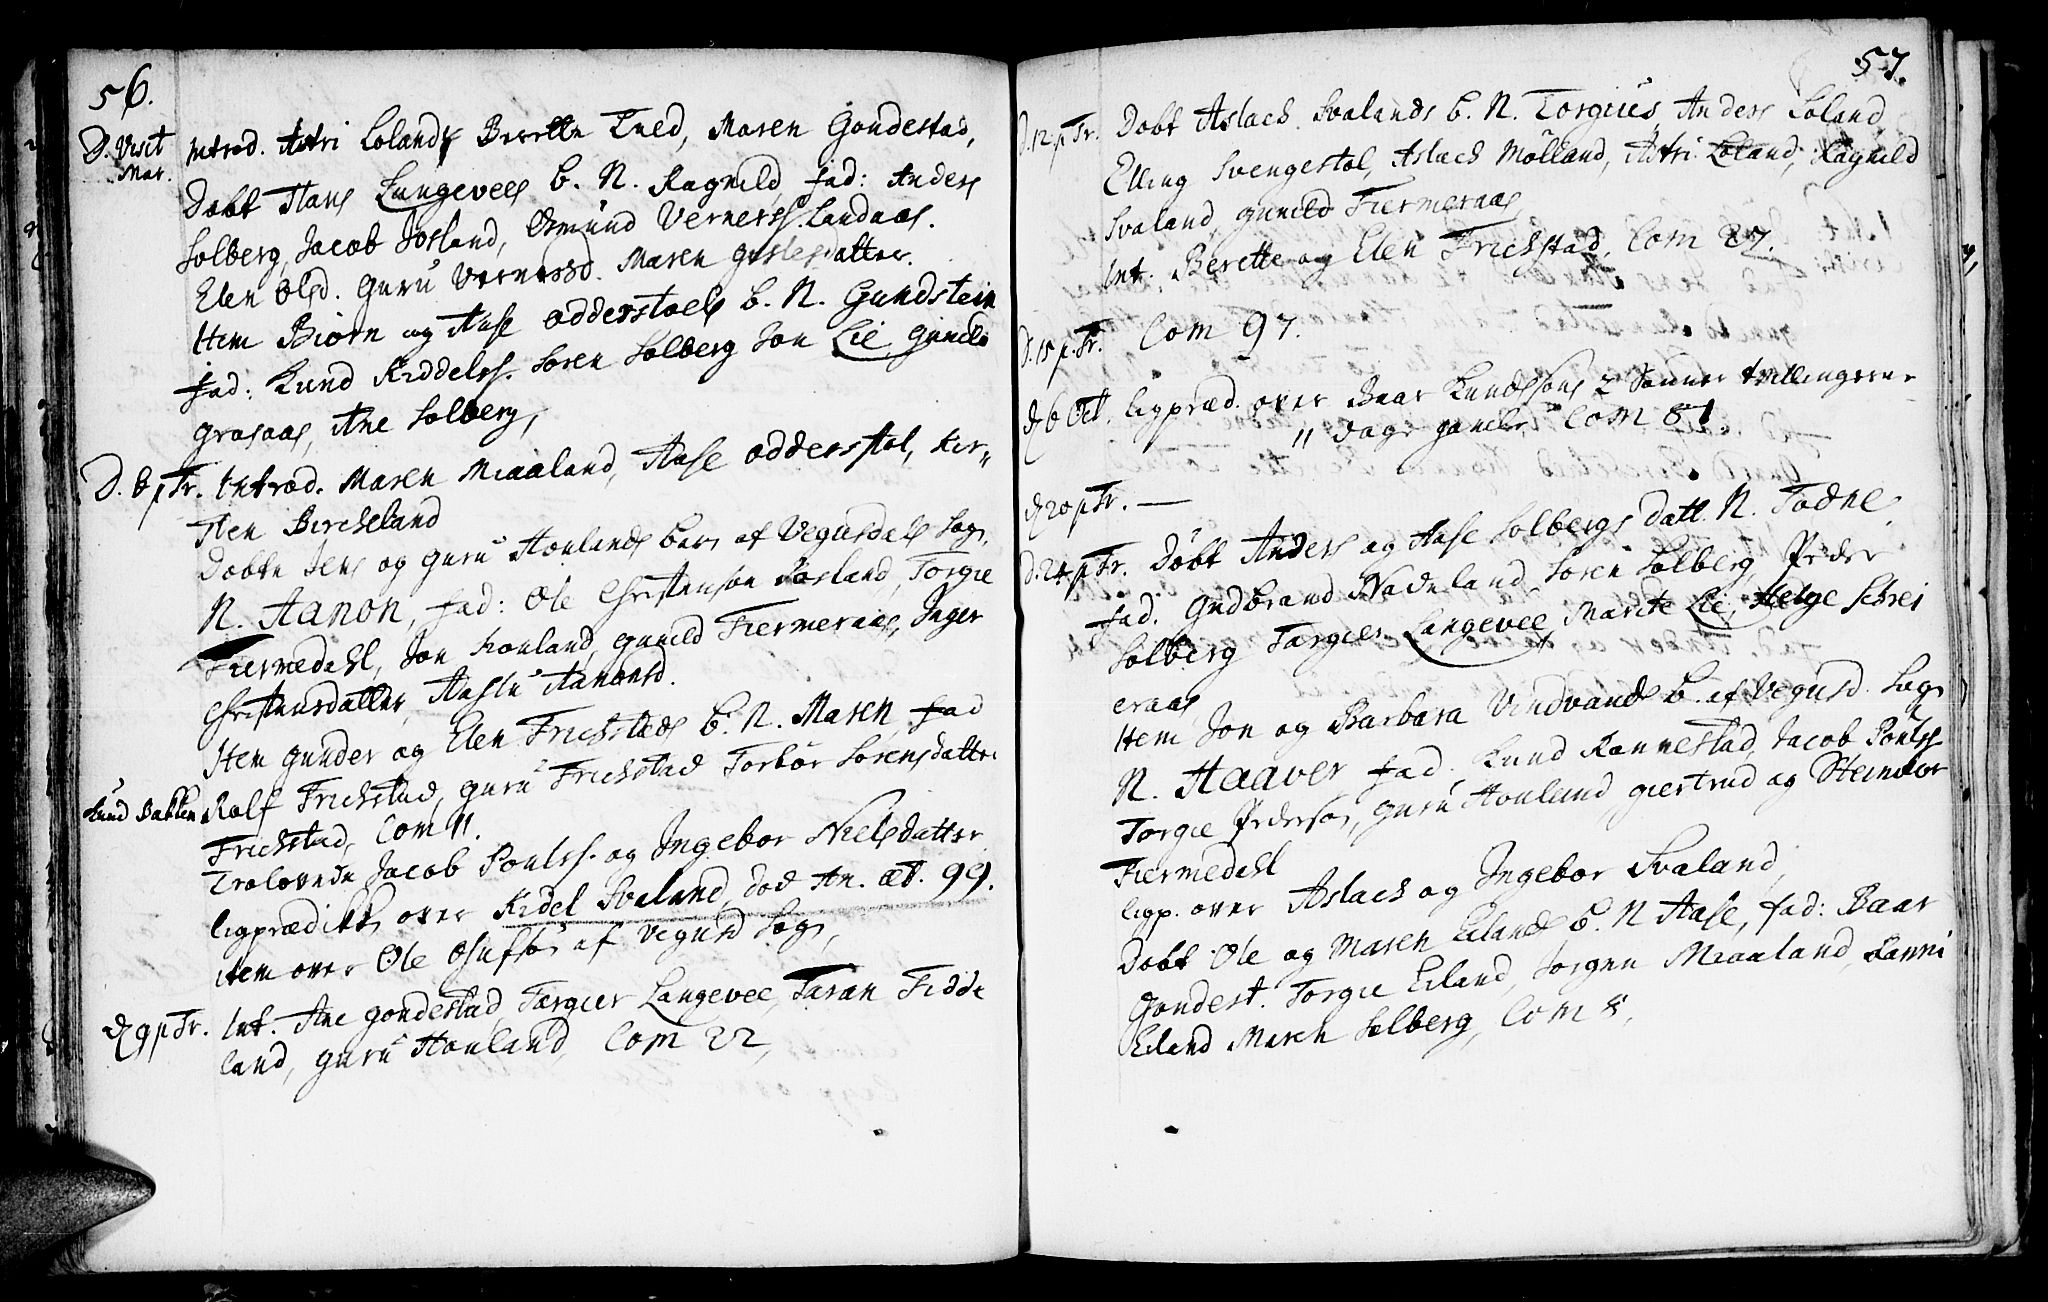 56.
D. Visit Introd. Astri Lolands Berette Tved, Maren Gondestad,
Mar.
Dobt Hans Langevees b. N. Ragnild, fad: Anders
Solberg, Jacob Josland, Osmund Vernerss. Landaas.
Elen Olsd. Guru Vernersd. Maren Gislesdatter.
Item Biørn og Aase Odderstoels b. N. Gundstein
fad: Knud Kiddelss. Soren Solberg Jon Lie Gunild
Grosaas, Ane Solberg,
D. 8 p Tr. Introd. Maren Miaaland, Aase Odderstøl, Kir-
sten Birkeland
Dobte Jens og Guru Honlands barn af Vegusdals Sogn,
N. Aanon, fad: Ole Christensøn Josland, Torgie
Fiermedahl, Jon Honland, Gunild Fiermeraas, Inger
Christensdatter, Aaslu Aanonsd.
Item Gunder og Elen Frichstads b. N. Maren, fad
Knud Bakken Rolf Frichstad, Guru Frichstad Torbor Sorensdatter
Frichstad, Com 11.
Trolovede Jacob Poulss. og Ingebor Nielsdatter
ligprædik over Kidel Svaland, død An. æt. 99.
item over Ole Olufsøn af Vegusd Sogn,
D 9 p Tr. Int. Ane Gondestad, Torgier Langevee, Taran Fidde
land, Guru Honland, Com 22,
57.
D. 12 p Tr. Dobt Aslach Svalands b. N. Torgius Anders Loland
Elling Svengestøl, Aslach Mølland, Astri Loland, Ragnild
Svaland, Gunild Fiermeraas
Int: Berette og Elen Frichstad, Com 27.
D. 15 p. Tr. Com 97.
D 6 Oct. ligpræd. over Baar Knudssøns 2 Sønner tvillingerne
11 dage gamle, Com 81
D 20 p Tr. —
D. 24 p Tr. Døbt Anders og Aase Solbergs datt. N. Todne
fad. Gudbrand Nadeland, Soren Solberg, Peder
Solberg Torgier Langevee Marite Lie, Helge Schrei
eraas,
Item Jon og Barbara Vindvands b. af Vegusd. Sogn
N. Haaver fad. Knud Rannestad, Jacob Poulss
Torgie Pedersøn, Guru Honland, Giertrud og Steinvor
Fiermedahl
ligp. over Aslach og Ingebor Svaland,
Døbt Ole og Maren Eilands b. N Aase, fad: Baar
Gondest. Torgie Eiland, Jorgen Miaaland, Tarni
Eiland Maren Solberg, Com 8,